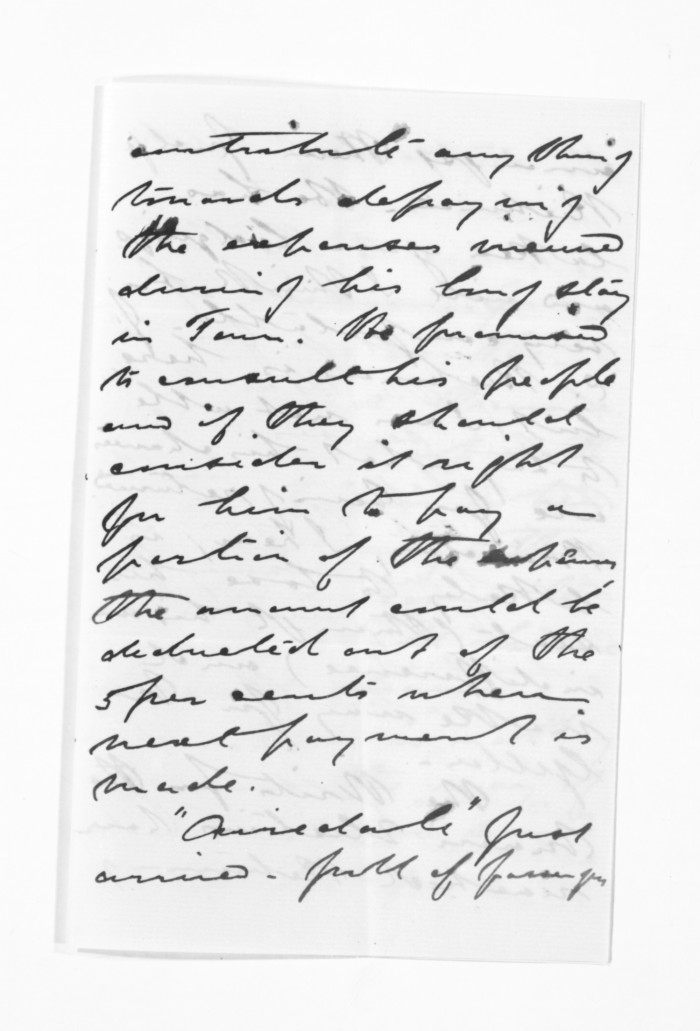 contribute any thing
towards defraying
the expenses incurred
during his long stay
in Town. He promised
to consult his people
and if they should
consider it right
for him to pay a
portion of the expenses
the amount could be
deducted out of the
5 per cents when
next payment is
made.
"Airedale" just
arrived - full of passengers